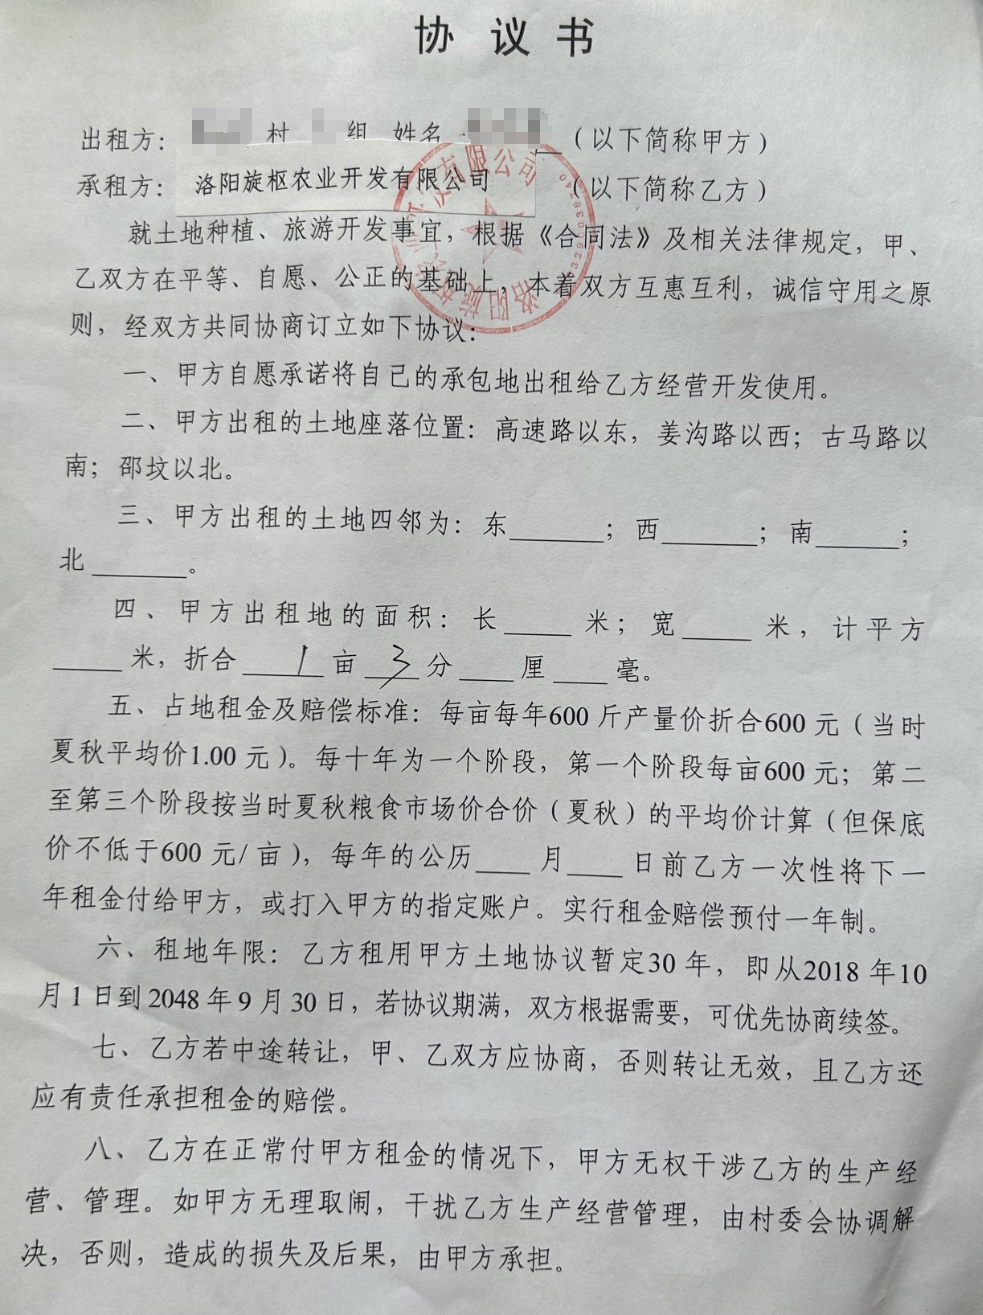 协议书
出租方： 村 组 姓名 （以下简称甲方）
承租方： 洛阳旋枢农业开发有限公司 （以下简称乙方）
就土地种植、旅游开发事宜，根据《合同法》及相关法律规定，甲、
乙双方在平等、自愿、公正的基础上，本着双方互惠互利，诚信守用之原
则，经双方共同协商订立如下协议：
一、甲方自愿承诺将自己的承包地出租给乙方经营开发使用。
二、甲方出租的土地座落位置：高速路以东，姜沟路以西；古马路以
南；邵坟以北。
三、甲方出租的土地四邻为：东______；西______；南______；
北______。
四、甲方出租地的面积：长____米；宽____米，计平方
____米，折合 1 亩 3 分____厘____毫。
五、占地租金及赔偿标准：每亩每年600斤产量价折合600元（当时
夏秋平均价1.00元）。每十年为一个阶段，第一个阶段每亩600元；第二
至第三个阶段按当时夏秋粮食市场价合价（夏秋）的平均价计算（但保底
价不低于600元/亩），每年的公历____月____日前乙方一次性将下一
年租金付给甲方，或打入甲方的指定账户。实行租金赔偿预付一年制。
六、租地年限：乙方租用甲方土地协议暂定30年，即从2018年10
月1日到2048年9月30日，若协议期满，双方根据需要，可优先协商续签。
七、乙方若中途转让，甲、乙双方应协商，否则转让无效，且乙方还
应有责任承担租金的赔偿。
八、乙方在正常付甲方租金的情况下，甲方无权干涉乙方的生产经
营、管理。如甲方无理取闹，干扰乙方生产经营管理，由村委会协调解
决，否则，造成的损失及后果，由甲方承担。